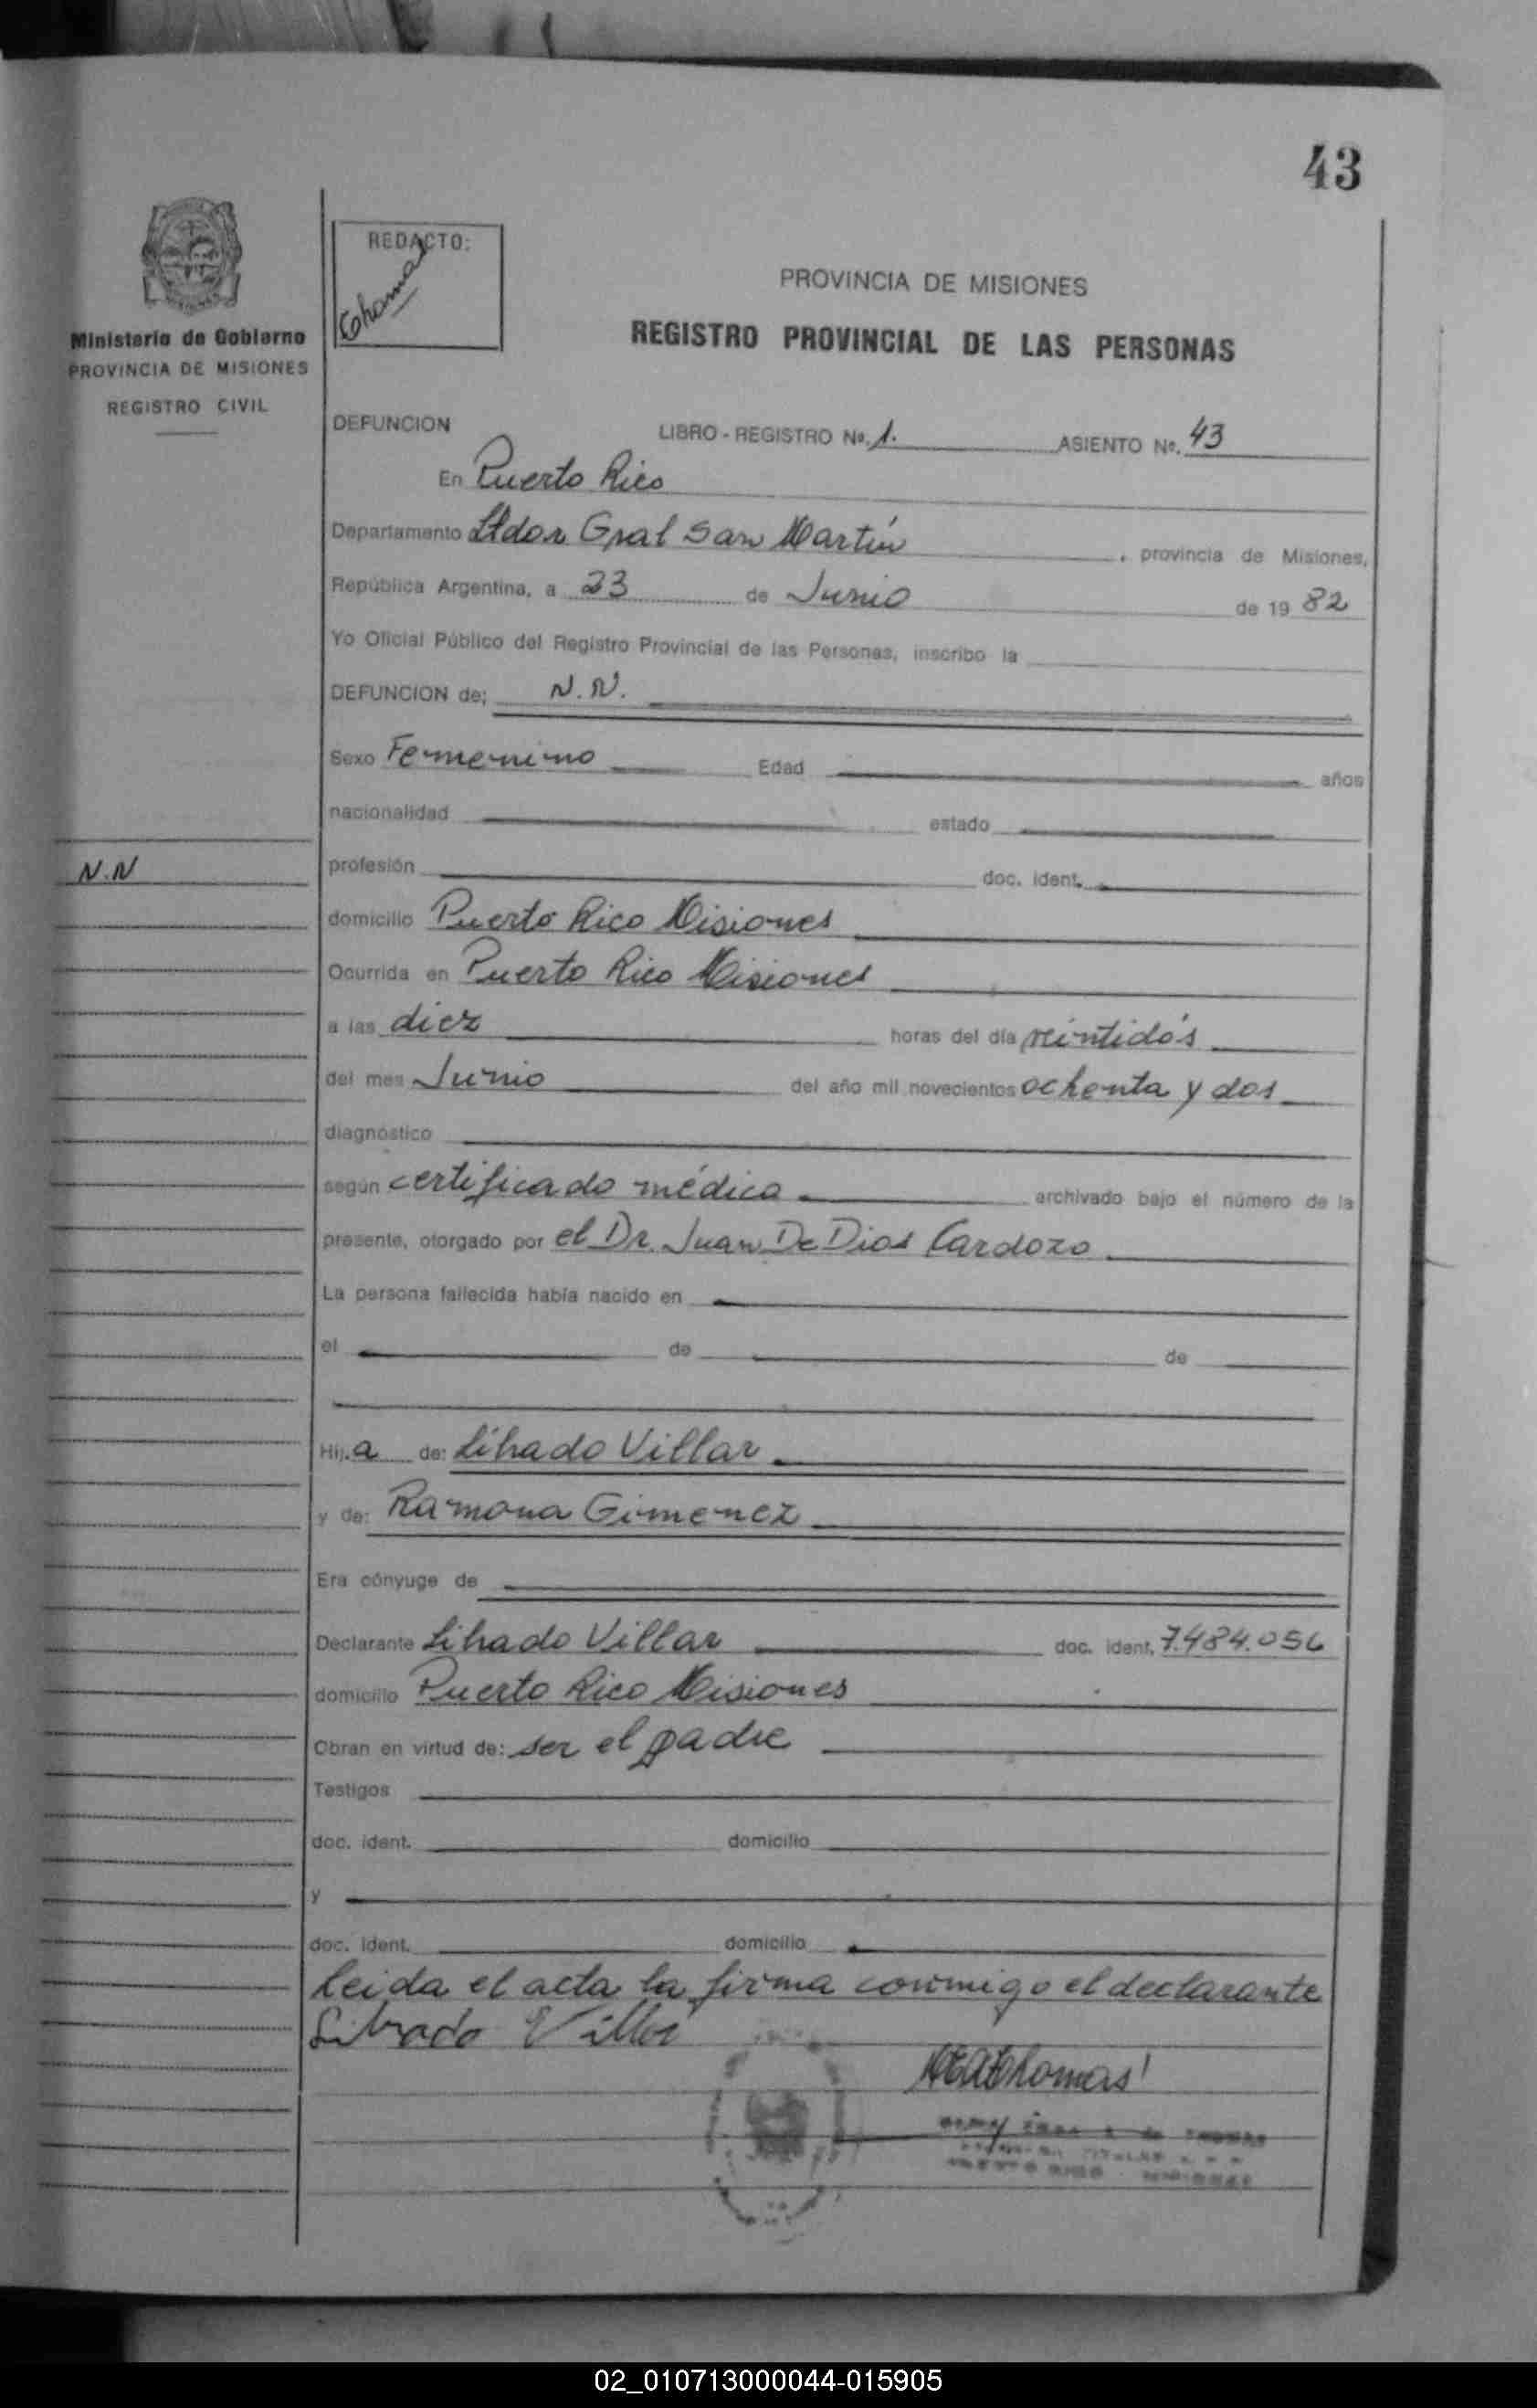 43
REDACTO:
Thomas
Ministerio de Gobierno
PROVINCIA DE MISIONES
REGISTRO CIVIL
PROVINCIA DE MISIONES
REGISTRO PROVINCIAL DE LAS PERSONAS
DEFUNCION LIBRO - REGISTRO No. 1. ASIENTO No. 43
En Puerto Rico
Departamento Ltdor Gral San Martín , provincia de Misiones,
República Argentina, a 23 de Junio de 19 82
Yo Oficial Público del Registro Provincial de las Personas, inscribo la
DEFUNCION de; N.N.
Sexo Femenino Edad años
nacionalidad estado
N.N
profesión doc. ident.
domicilio Puerto Rico Misiones
Ocurrida en Puerto Rico Misiones
a las diez horas del día veintidós
del mes Junio del año mil novecientos ochenta y dos
diagnóstico
según certificado médico archivado bajo el número de la
presente, otorgado por el Dr. Juan De Dios Cardozo
La persona fallecida había nacido en
el de de
Hij.a de: Librado Villar
y de: Ramona Gimenez
Era cónyuge de
Declarante Librado Villar doc. ident. 7.484.056
domicilio Puerto Rico Misiones
Obran en virtud de: ser el padre
Testigos
doc. ident. domicilio
y
doc. ident. domicilio
Leida el acta la firma conmigo el declarante
Librado Villar
02_010713000044-015905